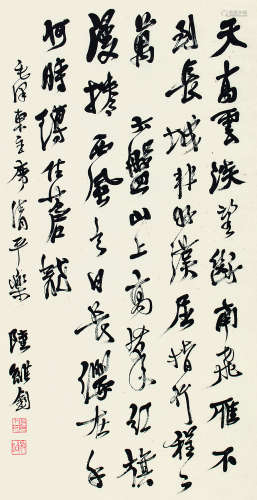 天高雲淡望斷南飛雁不
到長城非好漢屈指行程二
萬六盤山上高峰紅旗
漫捲西風今日長纓在手
何時縛住蒼龍
毛澤東主席清平樂 陸維釗